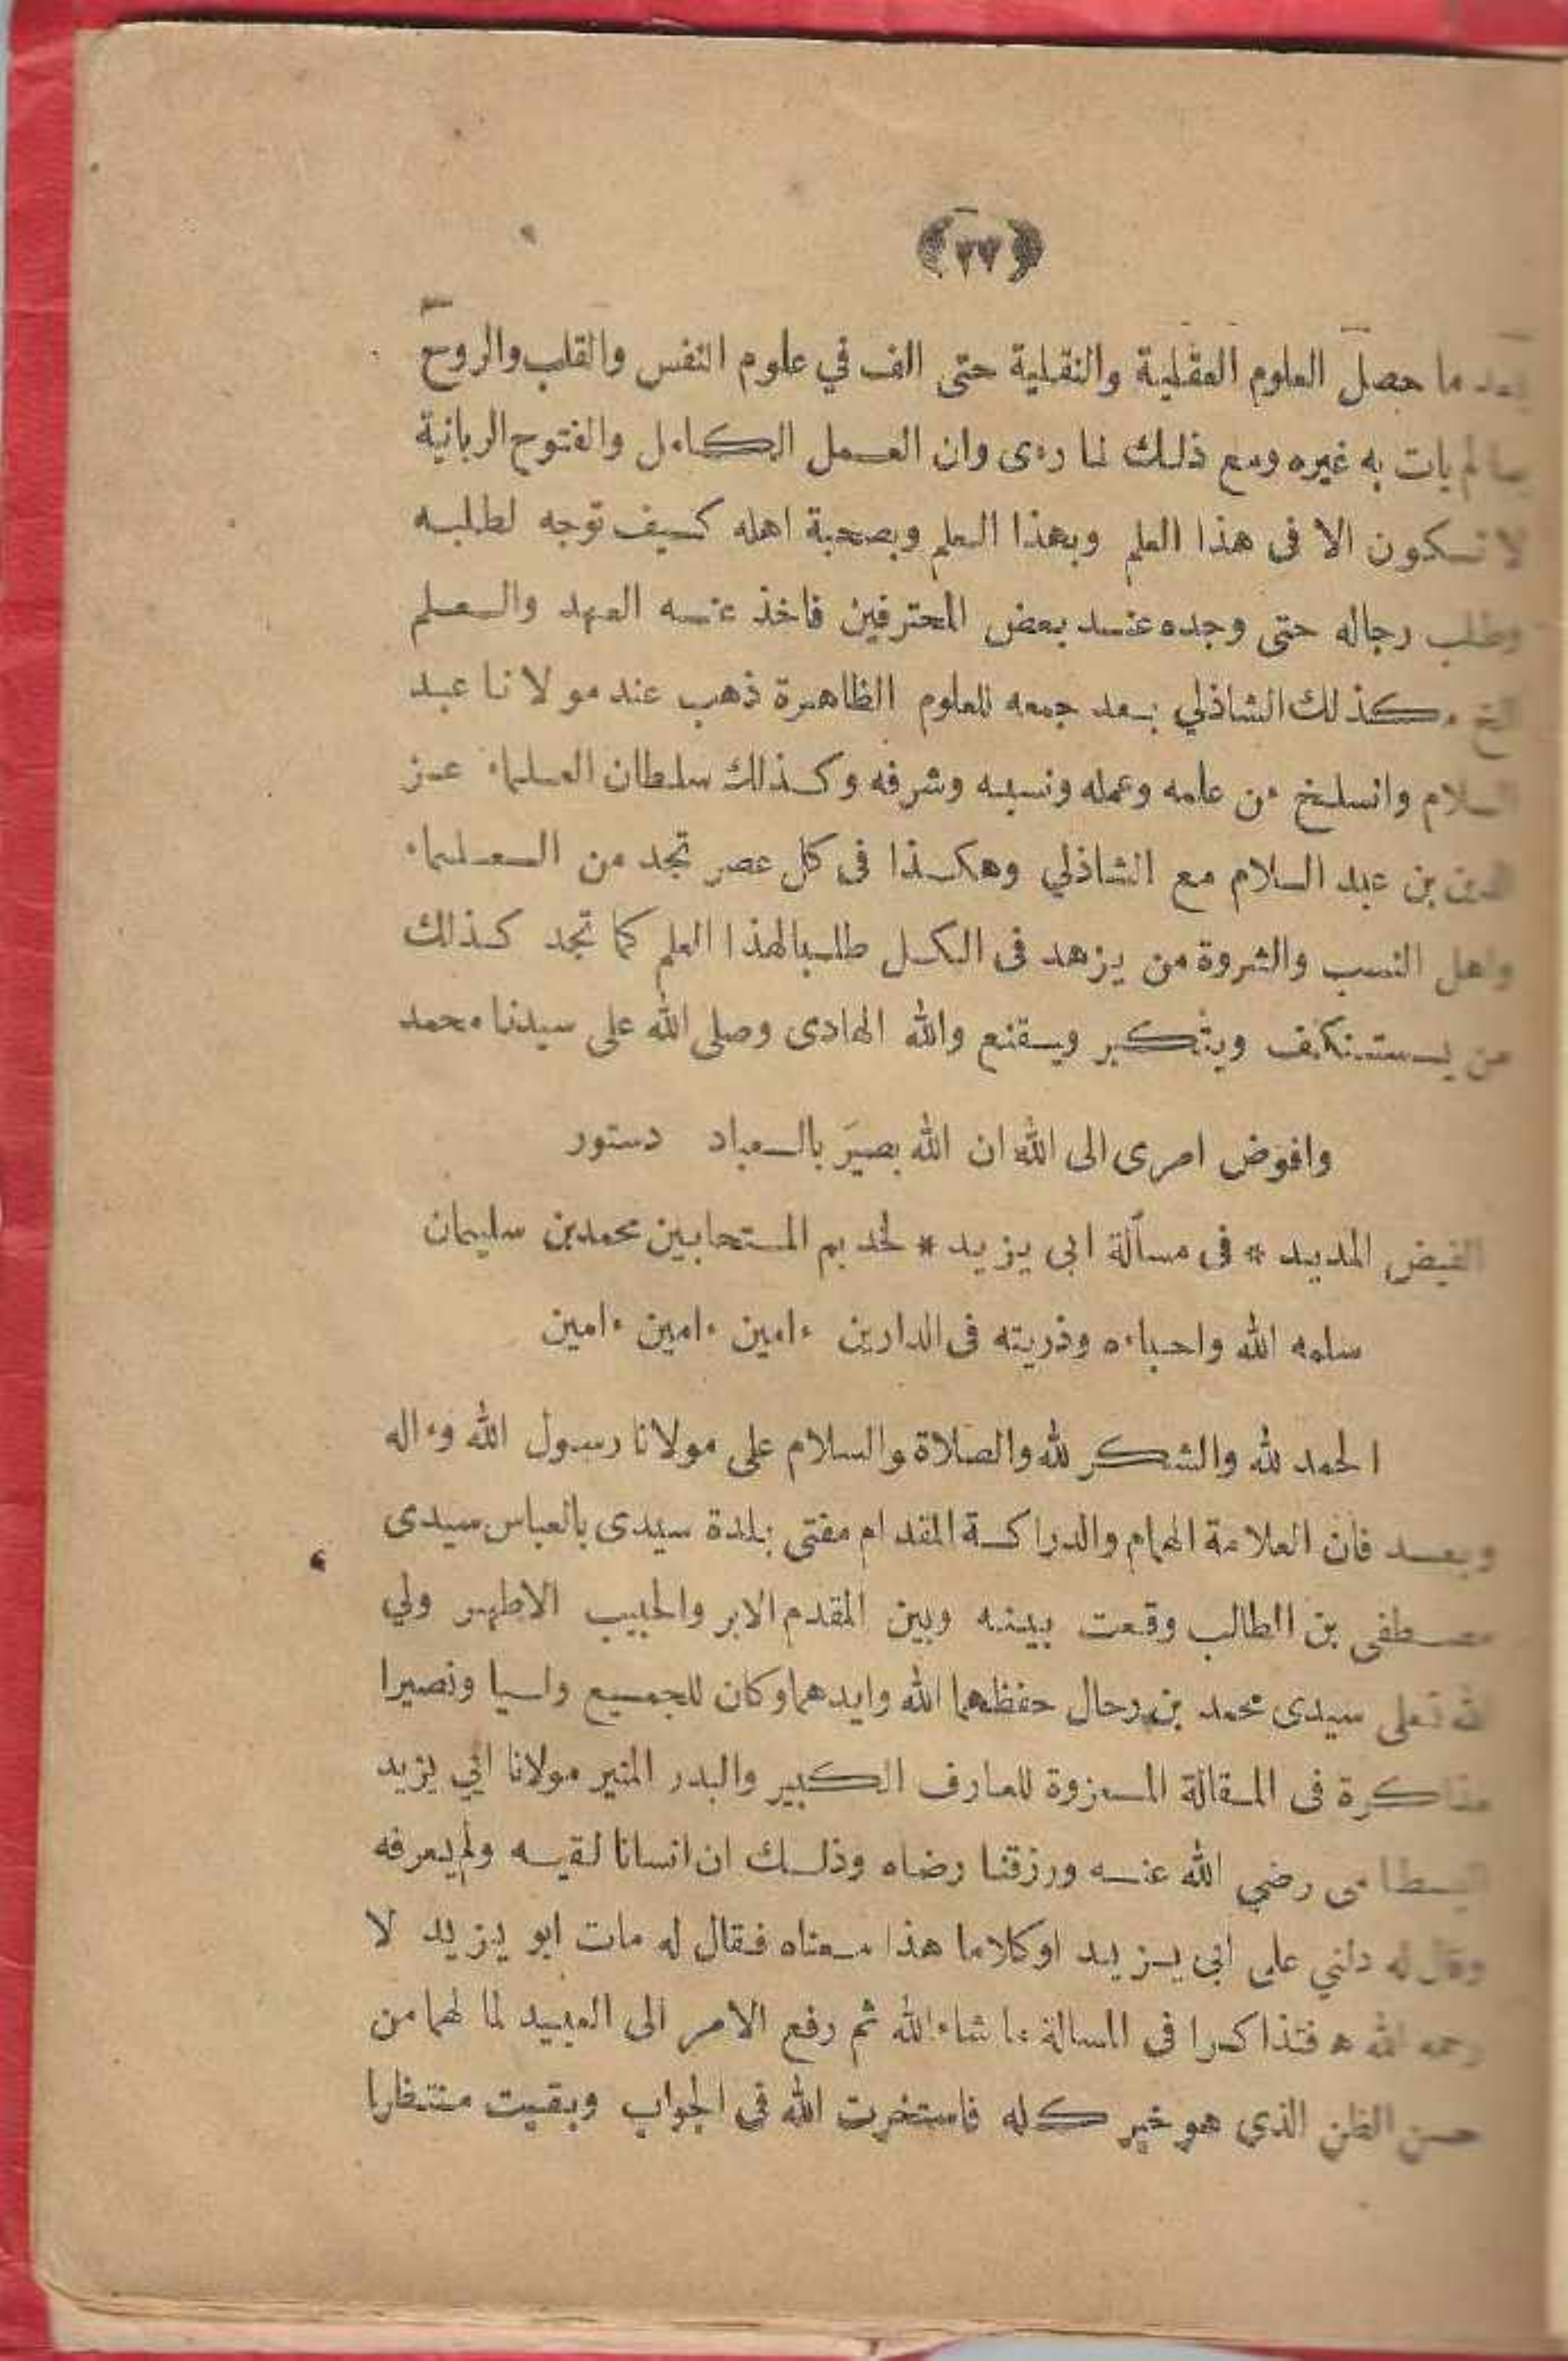 (٢٧)
بعد ما حصل العلوم العقلية والنقلية حتى الف في علوم النفس والقلب والروح
بما لم يات به غيره ومع ذلك لما رءى وان العمل الكامل والفتوح الربانية
لا تكون الا فى هذا العلم وبهذا العلم وبصحبة اهله كيف توجه لطلبه
وطلب رجاله حتى وجده عند بعض المحترفين فاخذ عنه العهد والعلم
الخ وكذلك الشاذلي بعد جمعه للعلوم الظاهرة ذهب عند مولانا عبد
السلام وانسلخ من علمه وعمله ونسبه وشرفه وكذلك سلطان العلماء عز
الدين بن عبد السلام مع الشاذلي وهكذا فى كل عصر تجد من العلماء
واهل النسب والثروة من يزهد فى الكل طلبا لهذا العلم كما تجد كذلك
من يستنكف ويتكبر ويقنع والله الهادى وصلى الله على سيدنا محمد
وافوض امرى الى الله ان الله بصير بالعباد دستور
الفيض المديد * فى مسألة ابى يزيد * لخديم المتحابين محمد بن سليمان
سلمه الله واحباءه وذريته فى الدارين ءامين ءامين ءامين
الحمد لله والشكر لله والصلاة والسلام على مولانا رسول الله وءاله
وبعد فان العلامة الهمام والدراكة المقدام مفتى بلدة سيدى بالعباس سيدى
مصطفى بن الطالب وقعت بينه وبين المقدم الابر والحبيب الاطهر ولي
الله تعلى سيدى محمد بن رحال حفظهما الله وايدهما وكان للجميع واسيا ونصيرا
مذاكرة فى المقالة المعزوة للعارف الكبير والبدر المنير مولانا ابي يزيد
البسطامى رضي الله عنه ورزقنا رضاه وذلك ان انسانا لقيه ولم يعرفه
وقال له دلني على ابى يزيد اوكلاما هذا معناه فقال له مات ابو يزيد لا
رحمه الله ه فتذاكرا فى المسالة ما شاء الله ثم رفع الامر الى العبيد لما لهما من
حسن الظن الذي هو خير كله فاستخرت الله فى الجواب وبقيت منتظرا